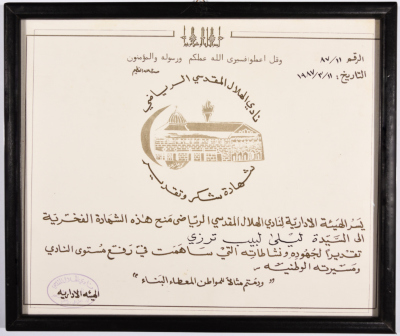 وقل اعملوا فسيرى الله عملكم ورسوله والمؤمنون
صدق الله العظيم
الرقم ٨٧/١١
التاريخ: ١٩٨٧/٣/١١
نادي الهلال المقدسي الرياضي
شهادة شكر وتقدير
يسر الهيئة الادارية لنادي الهلال المقدسي الرياضي منح هذه الشهادة الفخرية
الى السيدة ليلى لبيب ترزي
تقديرا لجهوده ونشاطاته التي ساهمت في رفع مستوى النادي
ومسيرته الوطنية -
" ودمتم مثالا للمواطن المعطاء البناء "
الهيئة الادارية